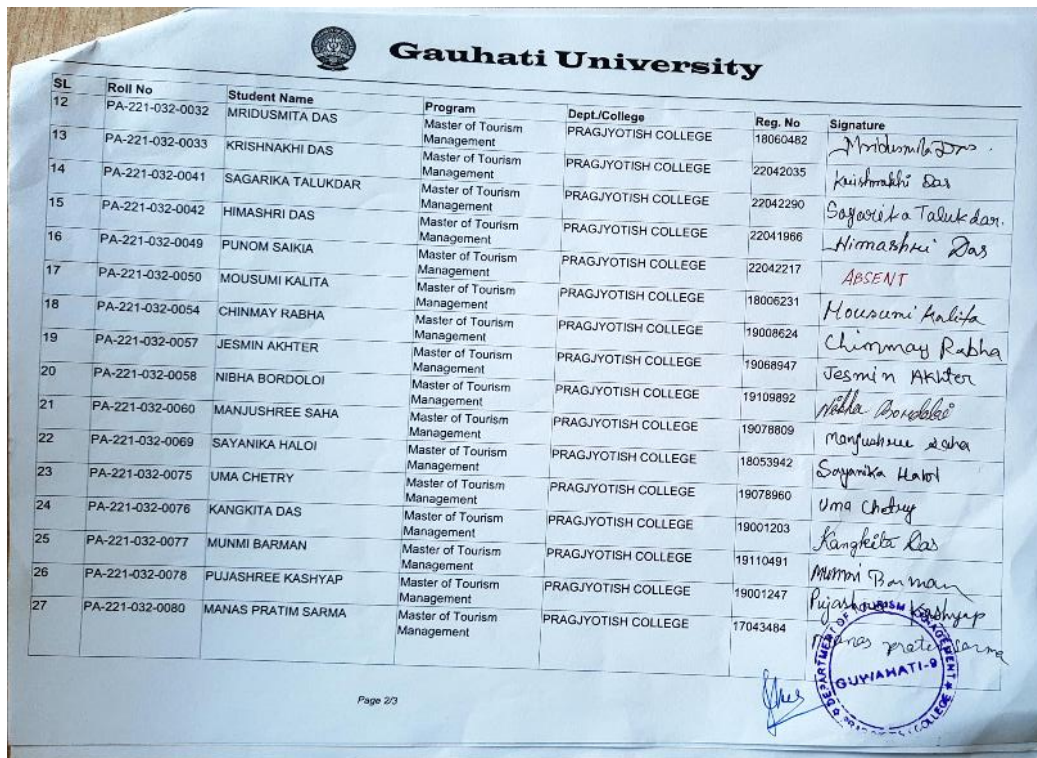 Gauhati University
SL Roll No Student Name Program Dept./College Reg. No Signature
12 PA-221-032-0032 MRIDUSMITA DAS Master of Tourism Management PRAGJYOTISH COLLEGE 18060482 Mridusmita Das.
13 PA-221-032-0033 KRISHNAKHI DAS Master of Tourism Management PRAGJYOTISH COLLEGE 22042035 Krishnakhi Das
14 PA-221-032-0041 SAGARIKA TALUKDAR Master of Tourism Management PRAGJYOTISH COLLEGE 22042290 Sagarika Talukdar.
15 PA-221-032-0042 HIMASHRI DAS Master of Tourism Management PRAGJYOTISH COLLEGE 22041966 Himashri Das
16 PA-221-032-0049 PUNOM SAIKIA Master of Tourism Management PRAGJYOTISH COLLEGE 22042217 ABSENT
17 PA-221-032-0050 MOUSUMI KALITA Master of Tourism Management PRAGJYOTISH COLLEGE 18006231 Mousumi Kalita
18 PA-221-032-0054 CHINMAY RABHA Master of Tourism Management PRAGJYOTISH COLLEGE 19008624 Chinmay Rabha
19 PA-221-032-0057 JESMIN AKHTER Master of Tourism Management PRAGJYOTISH COLLEGE 19068947 Jesmin Akhter
20 PA-221-032-0058 NIBHA BORDOLOI Master of Tourism Management PRAGJYOTISH COLLEGE 19109892 Nibha Bordoloi
21 PA-221-032-0060 MANJUSHREE SAHA Master of Tourism Management PRAGJYOTISH COLLEGE 19078809 Manjushree Saha
22 PA-221-032-0069 SAYANIKA HALOI Master of Tourism Management PRAGJYOTISH COLLEGE 18053942 Sayanika Haloi
23 PA-221-032-0075 UMA CHETRY Master of Tourism Management PRAGJYOTISH COLLEGE 19078960 Uma Chetry
24 PA-221-032-0076 KANGKITA DAS Master of Tourism Management PRAGJYOTISH COLLEGE 19001203 Kangkita Das
25 PA-221-032-0077 MUNMI BARMAN Master of Tourism Management PRAGJYOTISH COLLEGE 19110491 Munmi Barman
26 PA-221-032-0078 PUJASHREE KASHYAP Master of Tourism Management PRAGJYOTISH COLLEGE 19001247 Pujashree Kashyap
27 PA-221-032-0080 MANAS PRATIM SARMA Master of Tourism Management PRAGJYOTISH COLLEGE 17043484 Manas Pratim Sarma
DEPARTMENT OF TOURISM MANAGEMENT
GUWAHATI-9
COLLEGE
Page 2/3